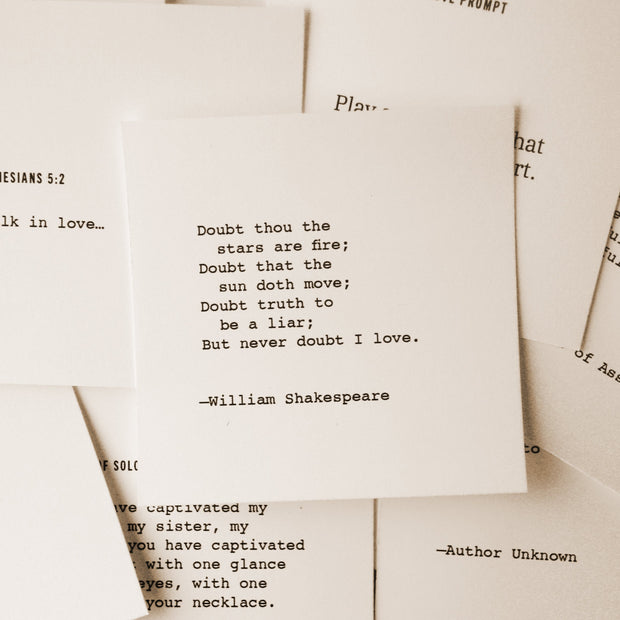 PROMPT
Play
hat
rt.
HESIANS 5:2
lk in love…
Doubt thou the
stars are fire;
Doubt that the
sun doth move;
Doubt truth to
be a liar;
But never doubt I love.
—William Shakespeare
of Ass
to
—Author Unknown
OF SOLO
ve captivated my
my sister, my
you have captivated
with one glance
eyes, with one
your necklace.